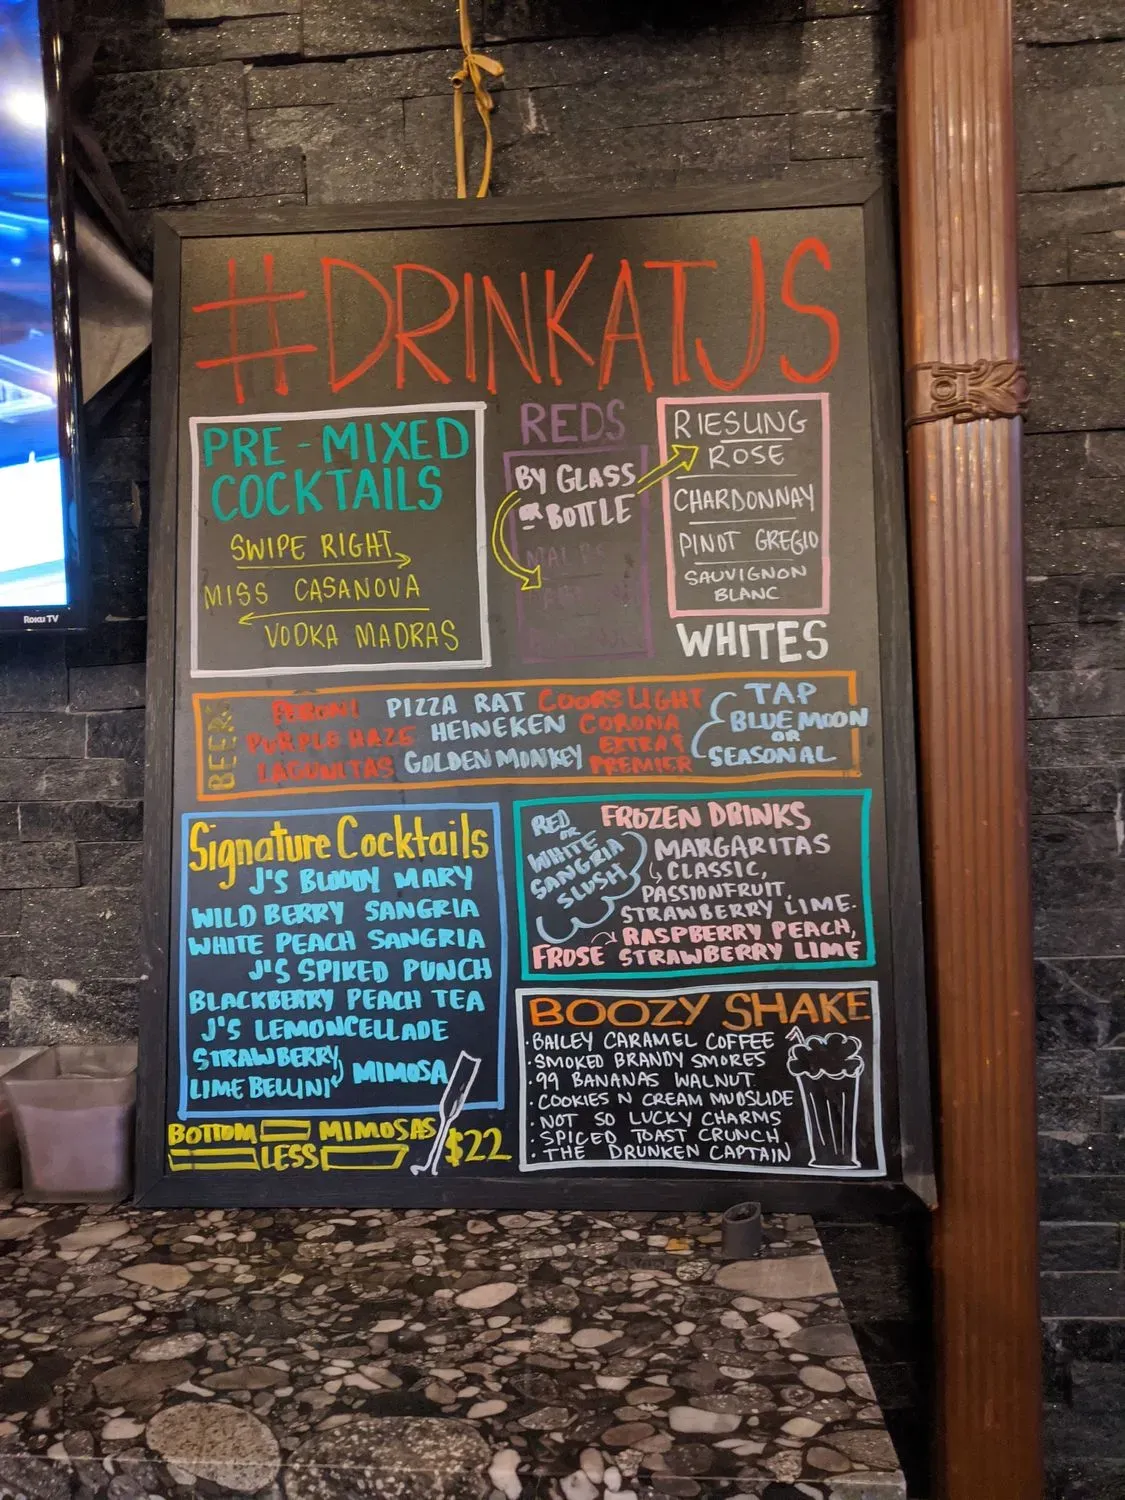 Roku TV
#DRINKATJS
PRE-MIXED
COCKTAILS
SWIPE RIGHT
MISS CASANOVA
VODKA MADRAS
REDS
BY GLASS
OR BOTTLE
RIESLING
ROSE
CHARDONNAY
PINOT GREGIO
SAUVIGNON
BLANC
WHITES
BEERS
PERONI PIZZA RAT COORS LIGHT
PURPLE HAZE HEINEKEN CORONA
EXTRA &
LAGUNITAS GOLDEN MONKEY PREMIER
TAP
BLUE MOON
OR
SEASONAL
Signature Cocktails
J'S BLOODY MARY
WILD BERRY SANGRIA
WHITE PEACH SANGRIA
J'S SPIKED PUNCH
BLACKBERRY PEACH TEA
J'S LEMONCELLADE
STRAWBERRY
LIME BELLINI MIMOSA
BOTTOM MIMOSAS
LESS
$22
RED
OR
WHITE
SANGRIA
SLUSH
FROZEN DRINKS
MARGARITAS
CLASSIC,
PASSIONFRUIT,
STRAWBERRY LIME.
FROSE RASPBERRY PEACH,
STRAWBERRY LIME
BOOZY SHAKE
·BAILEY CARAMEL COFFEE
·SMOKED BRANDY SMORES
·99 BANANAS WALNUT
·COOKIES N CREAM MUDSLIDE
·NOT SO LUCKY CHARMS
·SPICED TOAST CRUNCH
·THE DRUNKEN CAPTAIN